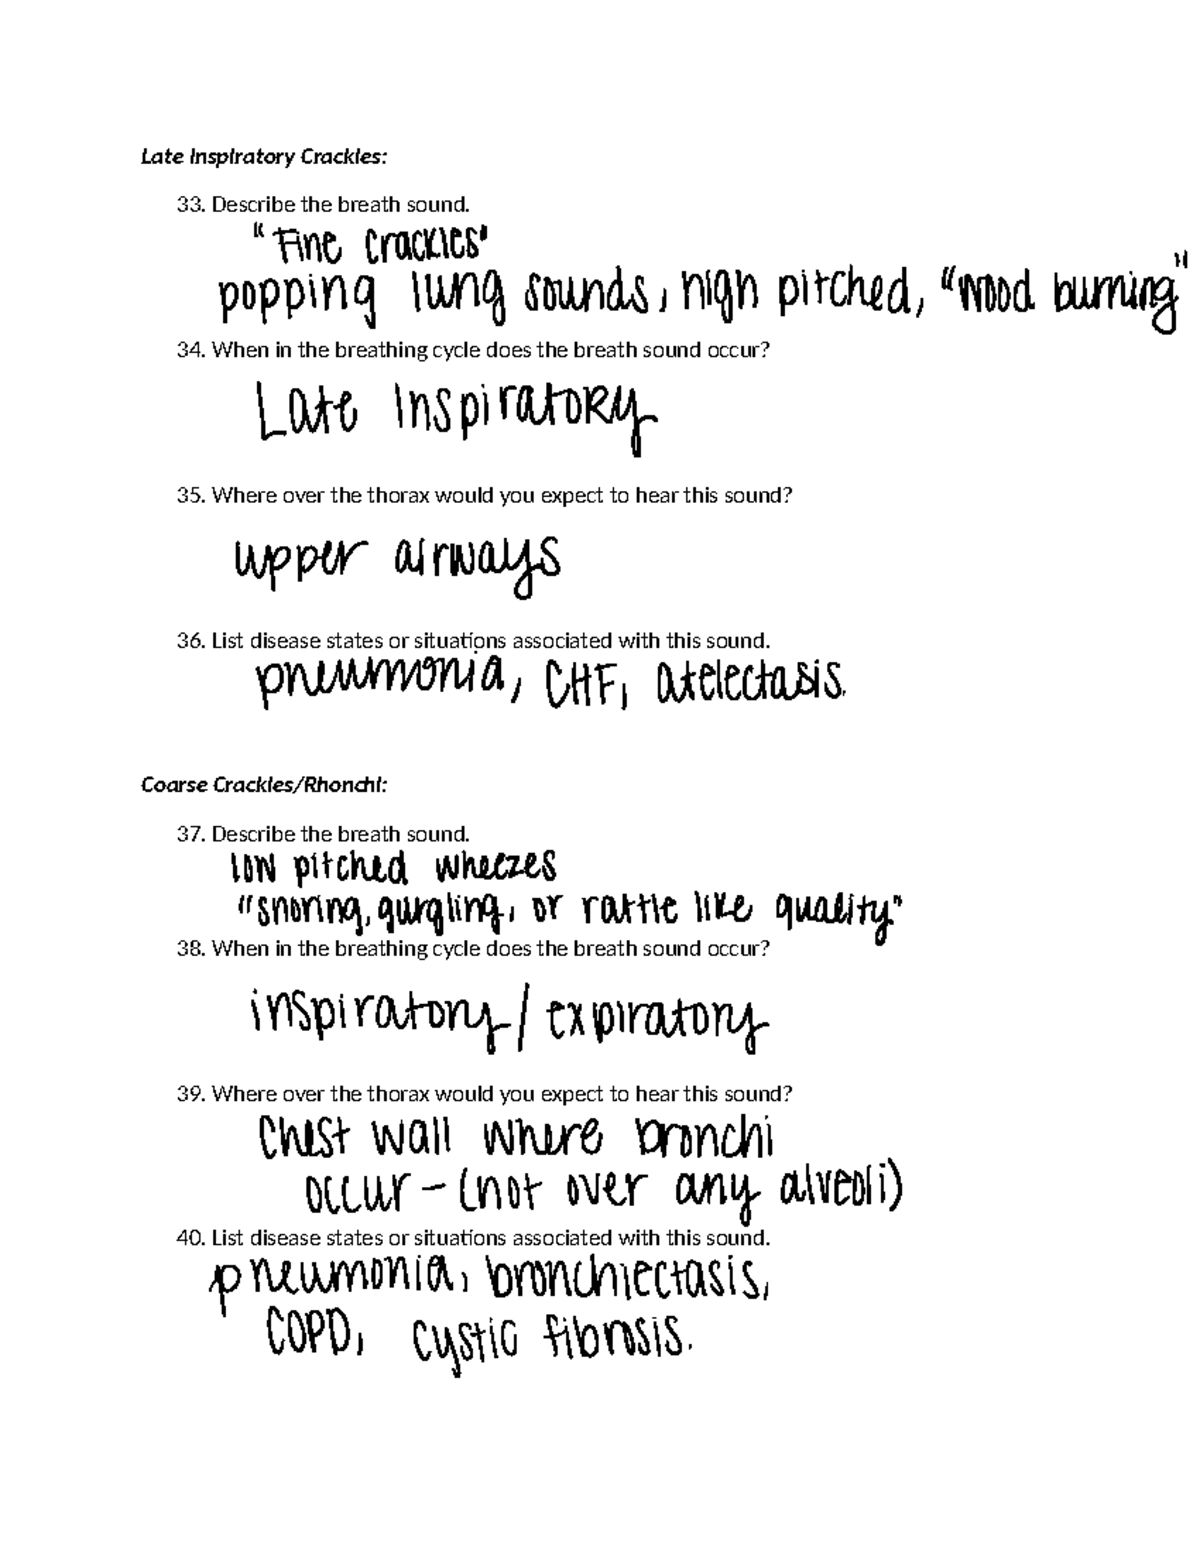 Late Inspiratory Crackles:
33. Describe the breath sound.
"Fine crackles"
popping lung sounds, high pitched, "wood burning"
34. When in the breathing cycle does the breath sound occur?
Late Inspiratory
35. Where over the thorax would you expect to hear this sound?
upper airways
36. List disease states or situations associated with this sound.
pneumonia, CHF, atelectasis.
Coarse Crackles/Rhonchi:
37. Describe the breath sound.
low pitched wheezes
"snoring, gurgling, or rattle like quality"
38. When in the breathing cycle does the breath sound occur?
inspiratory/expiratory
39. Where over the thorax would you expect to hear this sound?
Chest wall where bronchi
occur - (not over any alveoli)
40. List disease states or situations associated with this sound.
pneumonia, bronchiectasis,
COPD, cystic fibrosis.